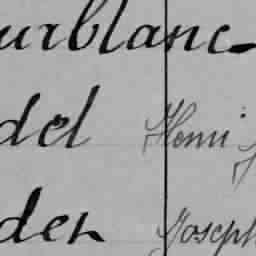 urblanc
del Henri J
der Joseph